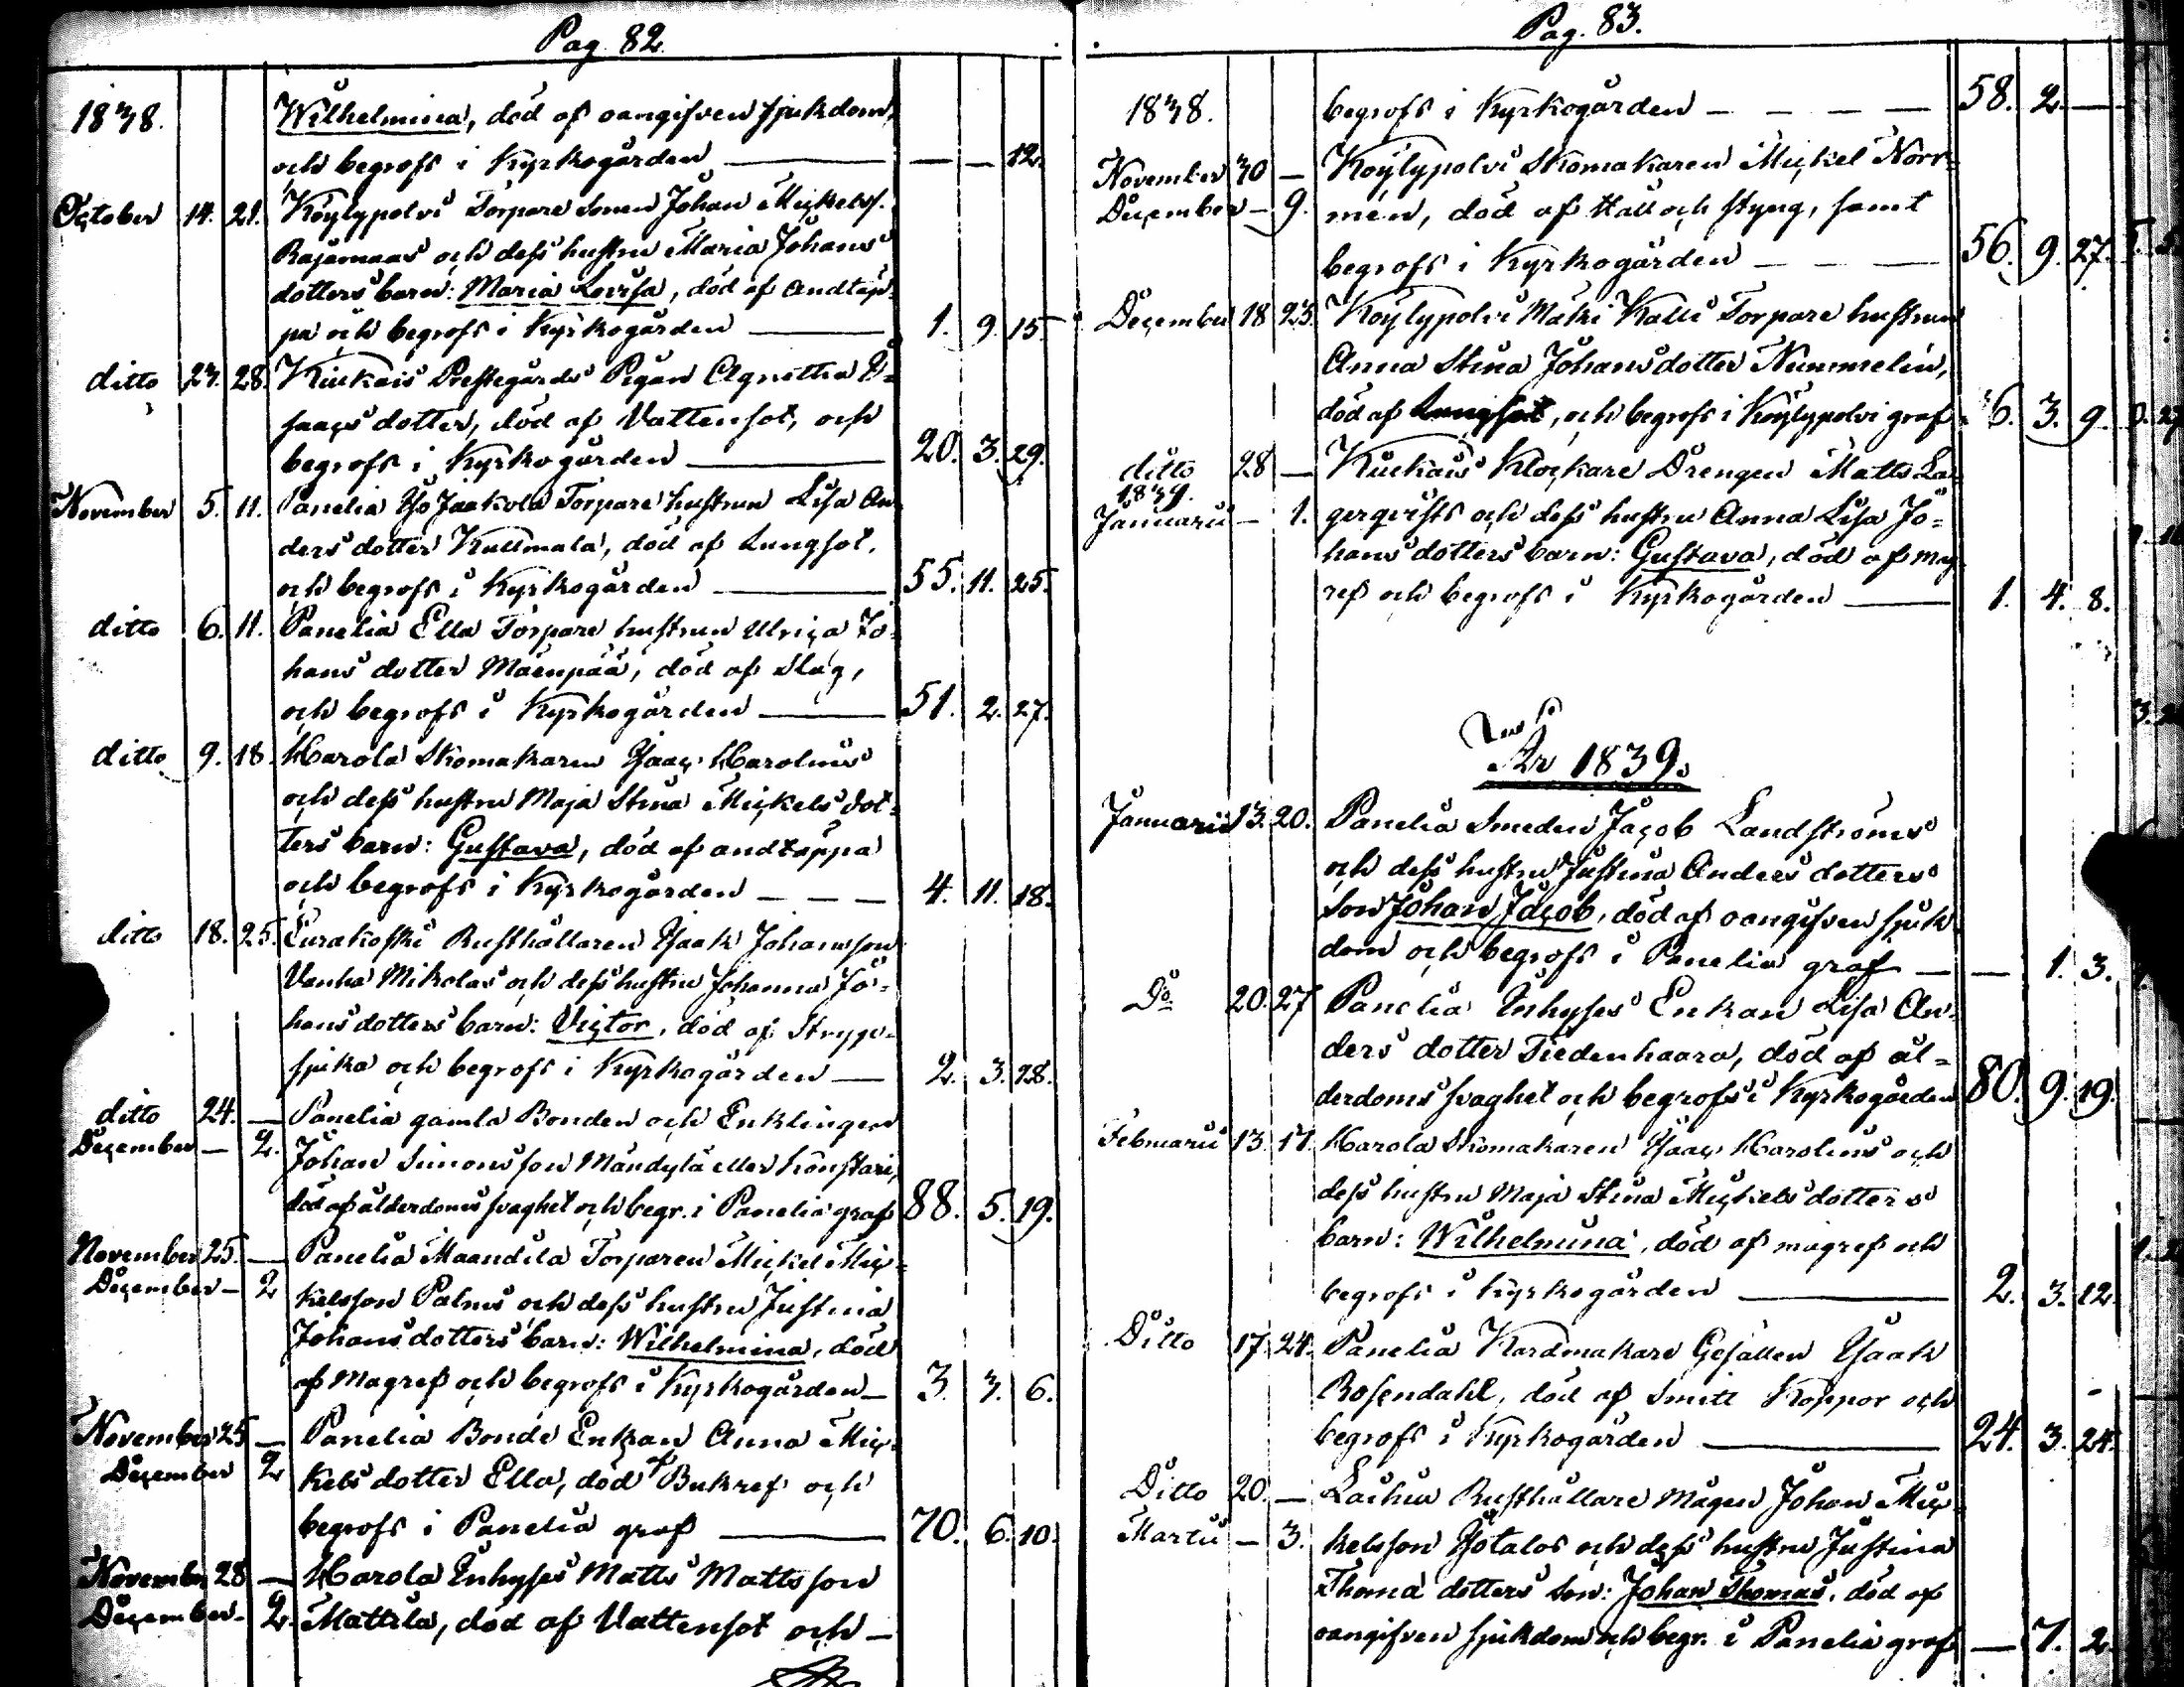 Pag. 82.
1838. Wilhelmina, död af oangifven sjukdom,
och begrofs i Kyrkogården — — — 12.
October 14. 21. Köylypolvi Torpare Sonen Johan Mickelss.
Rajamaas och dess hustru Maria Johans
dotters barn: Maria Lovisa, död af Andtäp-
pa och begrofs i Kyrkogården — 1. 9. 15.
ditto 23. 28. Kiukais Prestegårds Pigan Agnetha I-
saacs dotter, död af Vattensot, och
begrofs i Kyrkogården — 20. 3. 29.
November 5. 11. Panelia Iso Jaakola Torpare hustrun Lisa An-
ders dotter Kullmala, död af Lungsot,
och begrofs i Kyrkogården — 55. 11. 25.
ditto 6. 11. Panelia Ella Torpare hustrun Ulrica Jo-
hans dotter Mäenpää, död af slag,
och begrofs i Kyrkogården — 51. 2. 27.
ditto 9. 18. Harola Skomakaren Isaac Harolins
och dess hustru Maja Stina Mickels dot-
ters barn: Gustava, död af andtäppa
och begrofs i Kyrkogården — — — 4. 11. 18.
ditto 18. 25. Eurakoski Rusthållaren Isaak Johansson
Vanha Mikolas och dess hustru Johanna Jo-
hans dotters barn: Victor, död af Stryp-
sjuka och begrofs i Kyrkogården — 2. 3. 28.
ditto 24. — Panelia gamla Bonden och Enklingen
December — 2. Johan Simonsson Mändylä eller Knöstari,
död af ålderdoms svaghet och begr. i Panelia graf 88. 5. 19.
November 25. — Panelia Maandila Torparen Mickel Mic-
December — 2 kelsson Palms och dess hustru Justina
Johans dotters barn: Wilhelmina, död
af Magref och begrofs i Kyrkogården — 3. 3. 6.
November 25 — Panelia Bonde Enkan Anna Mic-
December 2 kels dotter Ella, död af Bukref och
begrofs i Panelia graf — 70. 6. 10.
November 28 — Harola Inhyses Matts Mattsson
December — 2. Mattila, död af Vattensot och —
Pag. 83.
1838. begrofs i Kyrkogården — — — — 58. 2. —
November 30 — Köylypolvi Skomakaren Mickel Norr-
December — 9. mén, död af Håll och styng, samt
begrofs i Kyrkogården — — — 56. 9. 27.
December 18 25. Köylypolvi Mäki Kalli Torpare hustrun
Anna Stina Johans dotter Nummelin,
död af Lungsot, och begrofs i Köylypolvi graf 6. 3. 9.
ditto 28 — Kiukais Klockare Drengen Matts La-
1839.
Januarii — 1. gerqvists och dess hustru Anna Lisa Jo-
hans dotters barn: Gustava, död af mag-
ref och begrofs i Kyrkogården — 1. 4. 8.
År 1839.
Januarii 13. 20. Panelia Smeden Jacob Landströms
och dess hustru Justina Anders dotters
Son Johan Jacob, död af oangifven sjuk
dom och begrofs i Panelia graf — — 1. 3.
Do 20. 27 Panelia Inhyses Enkan Lisa An-
ders dotter Tiedenhaara, död af ål-
derdoms svaghet och begrofs i Kyrkogården 80. 9. 19.
Februarii 13. 17. Harola Skomakaren Isaac Harolins och
dess hustru Maja Stina Mickels dotters
barn: Wilhelmina, död af magref och
begrofs i Kyrkogården — 2. 3. 12.
Ditto 17. 24. Panelia Kardmakare Gesällen Isaak
Rosendahl, död af Smitt Koppor och
begrofs i Kyrkogården — 24. 3. 24.
Ditto 20. — Laihia Rusthållare Mågen Johan Mic-
Martii — 3. kelsson Isotalos och dess hustru Justina
Thoma dotters Son: Johan Thomas, död af
oangifven sjukdom och begr. i Panelia graf — 7. 2.